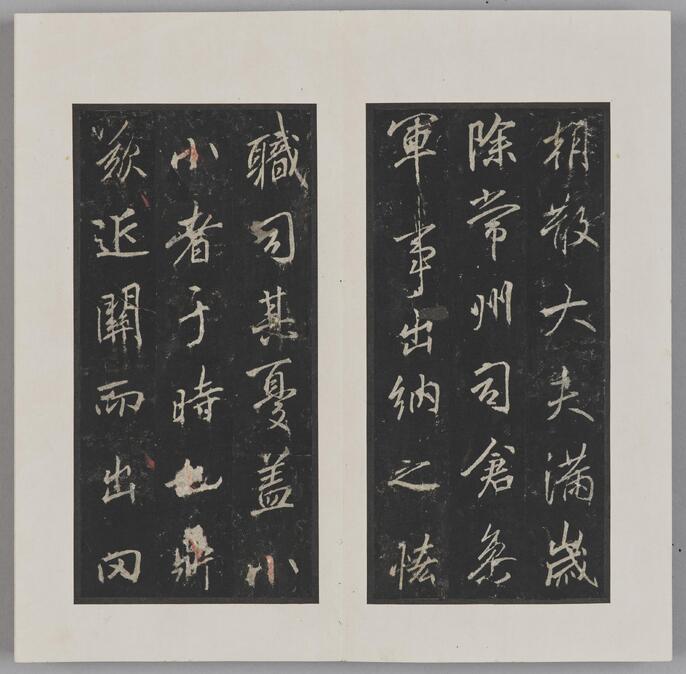 朝散大夫滿歲
除常州司倉參
軍事出納之恡
職司其憂蓋小
小者于時也
歎近關而出罔